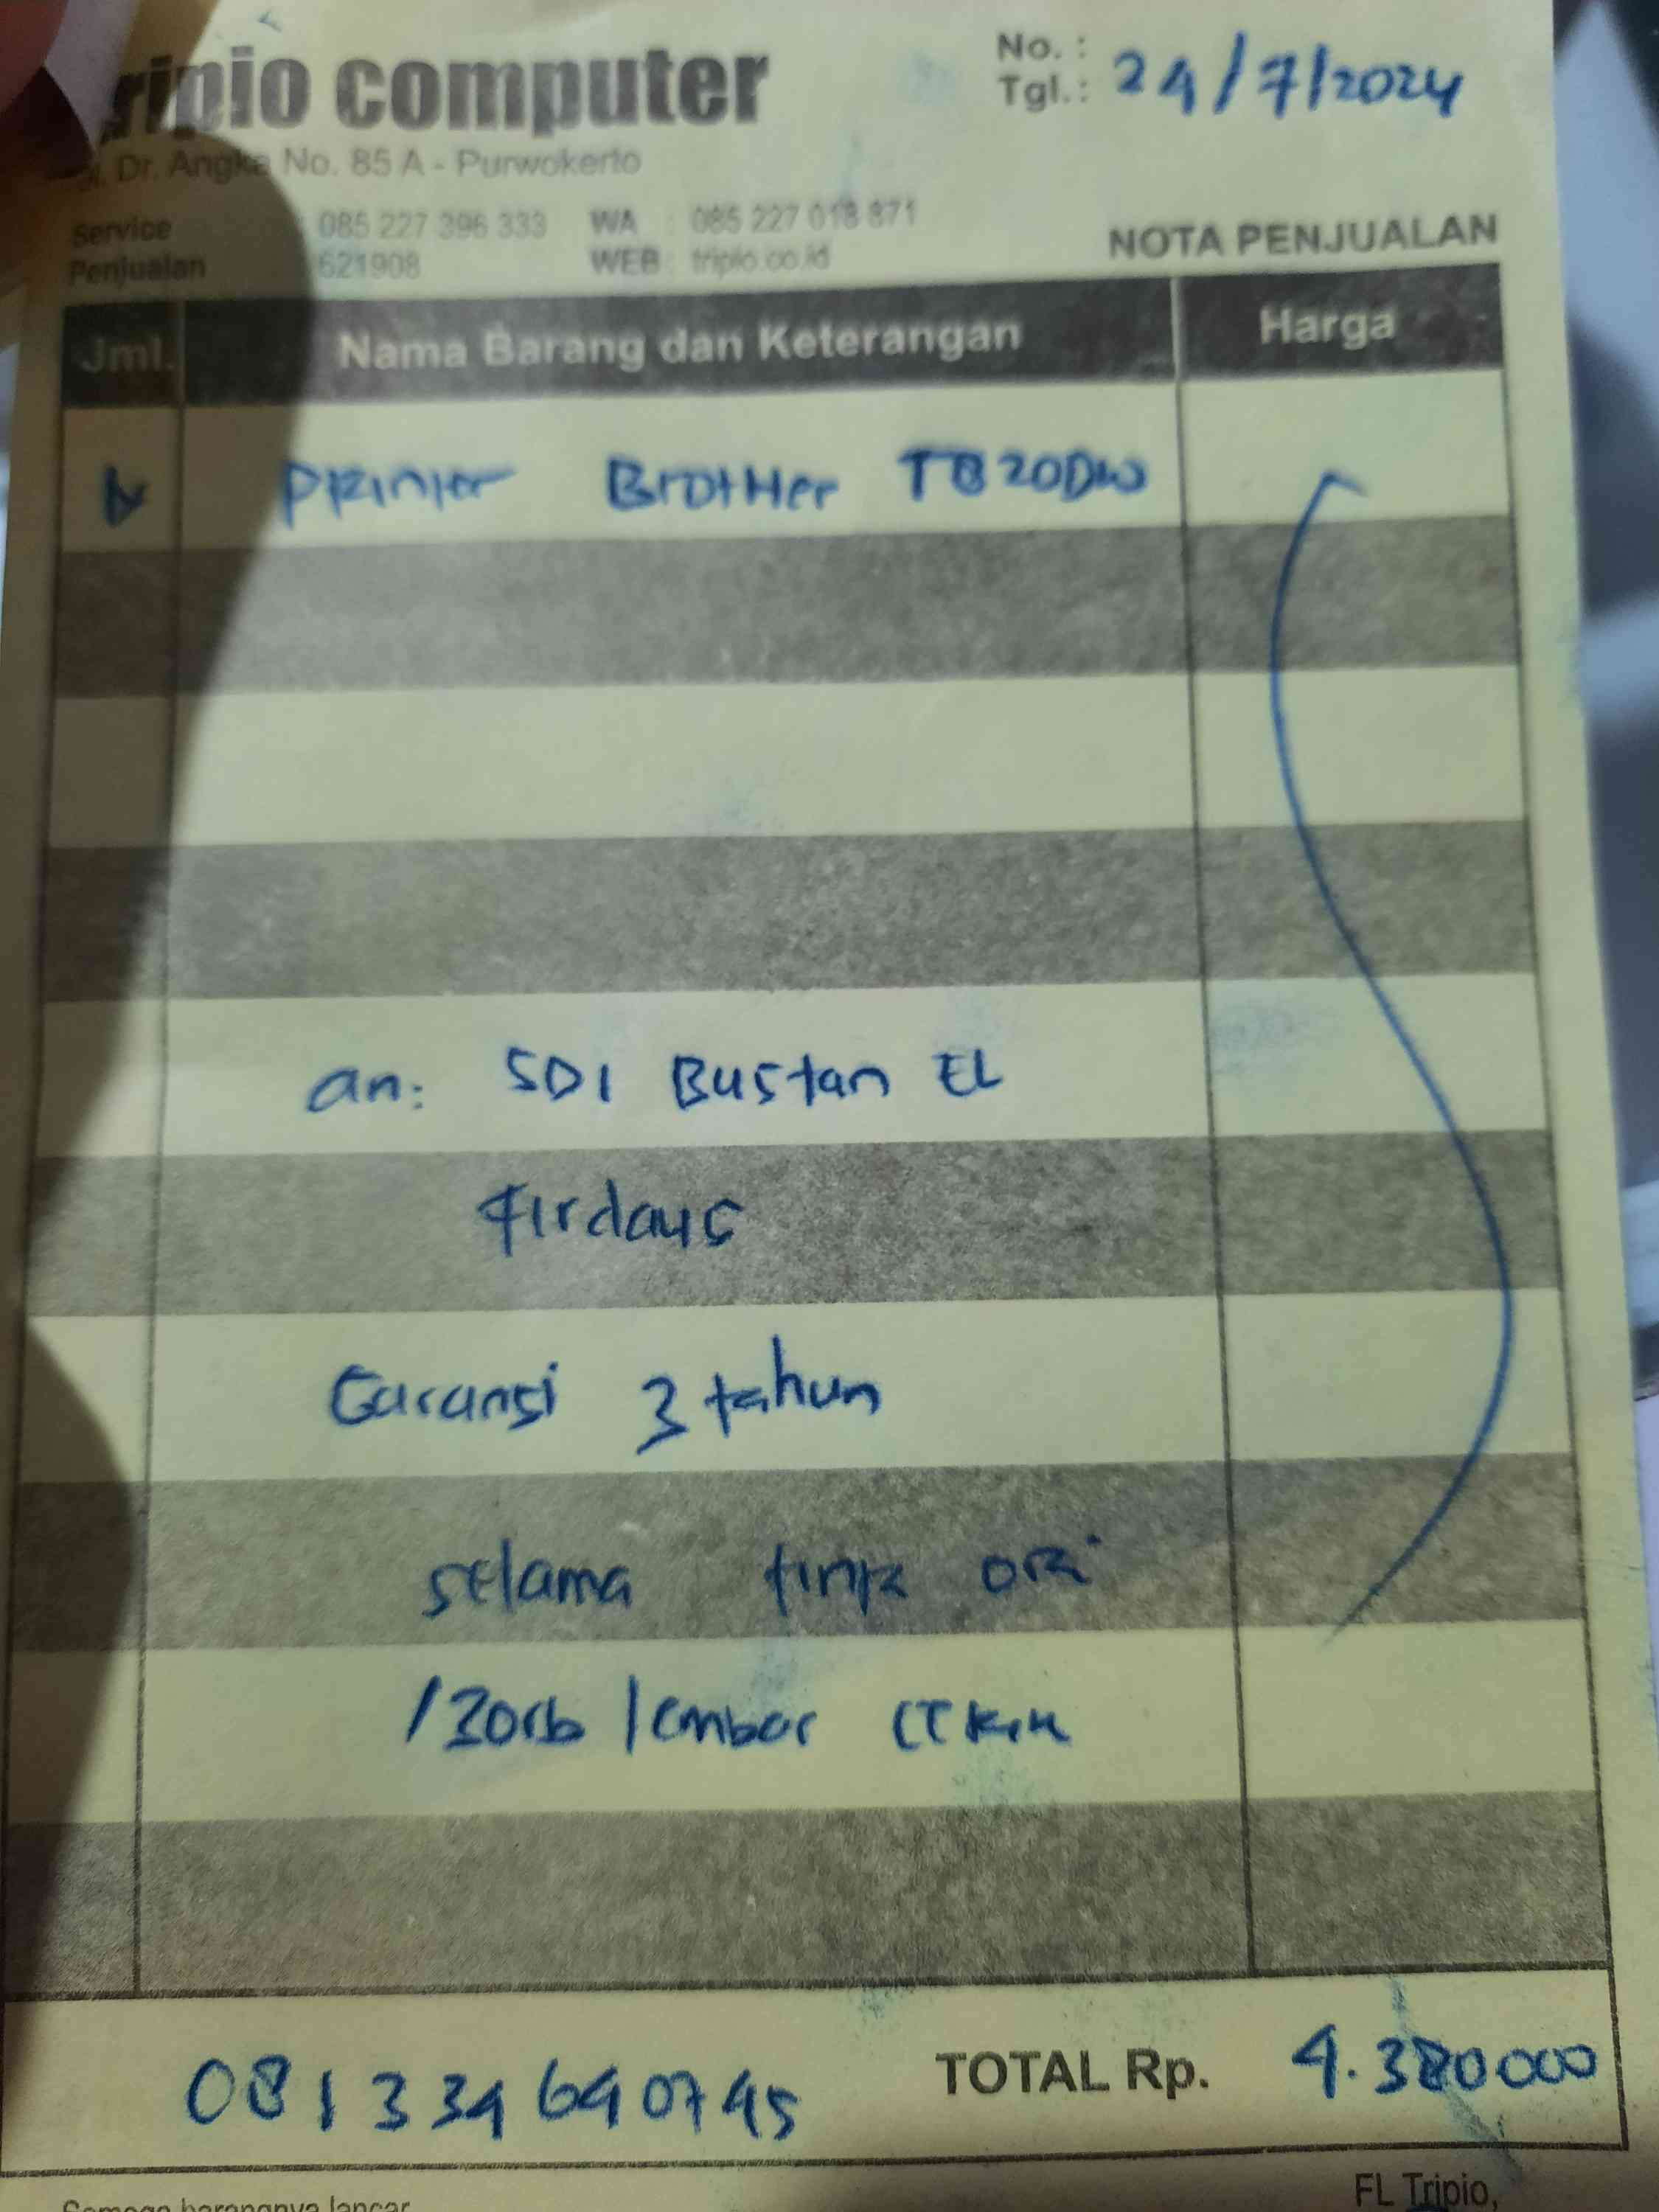 tripio computer
No. :
Tgl.: 24/7/2024
Jl. Dr. Angka No. 85 A - Purwokerto
Service : 085 227 396 333 WA : 085 227 018 871
Penjualan 621908 WEB : tripio.co.id
NOTA PENJUALAN
Jml. Nama Barang dan Keterangan Harga
Printer Brother T820DW
an: SDI Bustan EL
Firdaus
Garansi 3 tahun
selama tinta ori
/30rb lembar
TOTAL Rp. 4.380000
081334640745
Semoga barangnya lancar
FL Tripio,